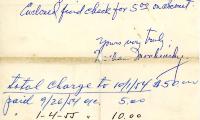 Enclosed find check for 5.00 on account
Yours very truly
total charge to 10/1/54 $50.00
paid 9/26/54 5.00
" 1-4-55 " 10.00